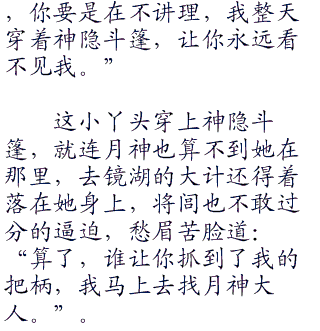 ，你要是在不讲理，我整天
穿着神隐斗篷，让你永远看
不见我。”
这小丫头穿上神隐斗
篷，就连月神也算不到她在
那里，去镜湖的大计还得着
落在她身上，将闾也不敢过
分的逼迫，愁眉苦脸道：
“算了，谁让你抓到了我的
把柄，我马上去找月神大
人。”。